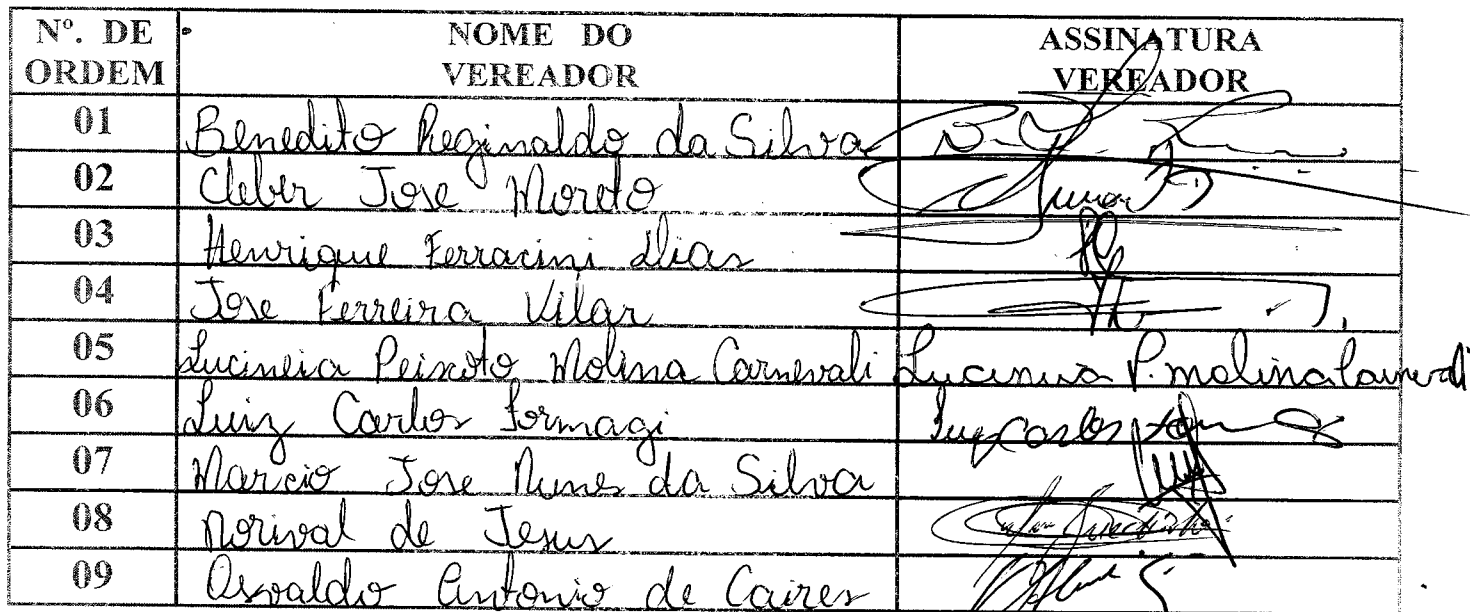 Nº. DE NOME DO ASSINATURA
ORDEM VEREADOR VEREADOR
01 Benedito Reginaldo da Silva
02 Cleber Jose Moreto
03 Henrique Ferracini Dias
04 Jose Ferreira Vilar
05 Lucineia Peixoto Molina Carnevali Lucineia P. Molina Carnevali
06 Luiz Carlos Formagi Luiz Carlos
07 Marcio Jose Nunes da Silva
08 Norival de Jesus
09 Osvaldo Antonio de Caires